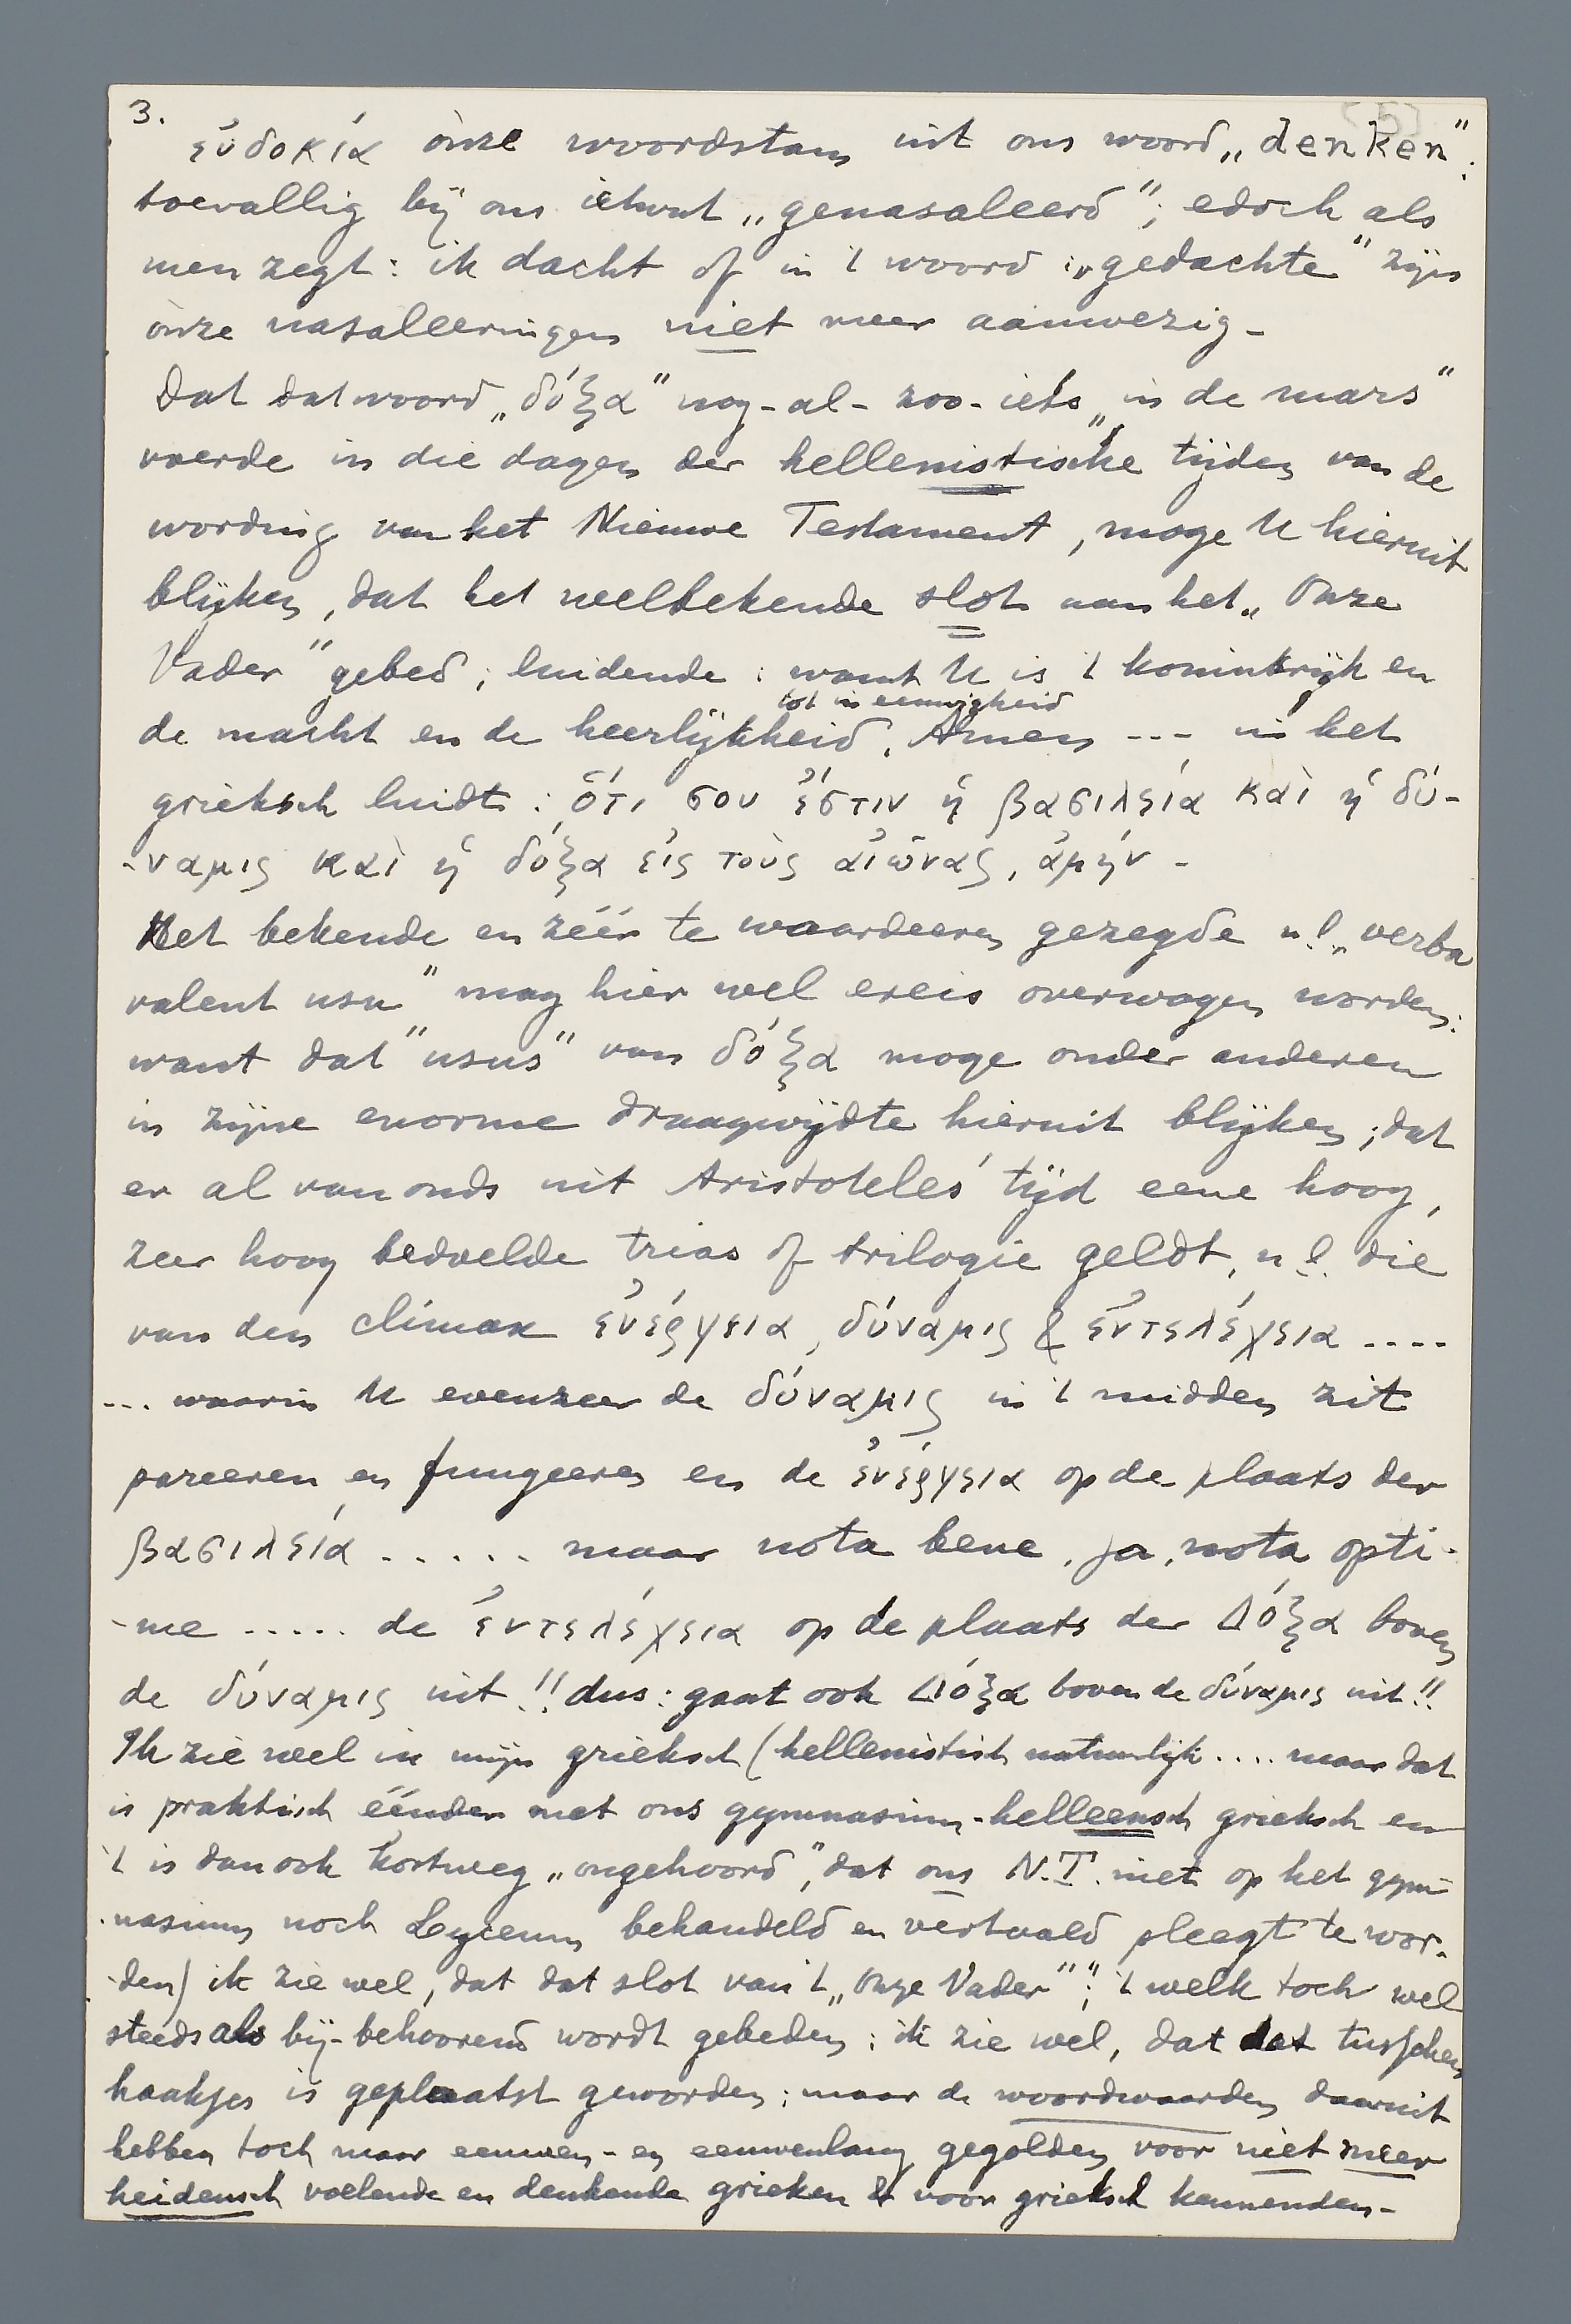 3.
εὐδοκία ònze woordstam uit ons woord „denken":
toevallig bij ons ietwat „genasaleerd"; edoch als
men zegt: ik dacht of in 't woord: „gedachte" zijn
onze nasaleeringen niet meer aanwezig -
Dat dat woord „δόξα" nog-al-zoo-iets „in de mars"
voerde in die dagen der hellenistische tijden van de
wording van het Nieuwe Testament, moge U hieruit
blijken, dat het welbekende slot van het „Onze
Vader" gebed; luidende: want U is 't koninkrijk en
tot in eeuwigheid
de macht en de heerlijkheid. Amen --- in het
grieksch luidt: ὅτι σου ἔστιν ἡ βασιλεία καὶ ἡ δύ-
-ναμις καὶ ἡ δόξα εἰς τοὺς αἰῶνας, ἀμήν -
Het bekende en zéér te waardeeren gezegde n.l. „verba
valent usu" mag hier wel ereis overwogen worden:
want dat "usus" van δόξα moge onder anderen
in zijne enorme draagwijdte hieruit blijken; dat
er al van ouds uit Aristoteles' tijd eene hoog,
zeer hoog bedoelde trias of trilogie geldt, n.l. die
van den climax ἐνέργεια, δύναμις & ἐντελέχεια ....
... waarin U evenzeer de δύναμις in 't midden zit
pareeren en fungeeren en de ἐνέργεια op de plaats der
βασιλεία ..... maar nota bene, ja, nota opti-
-me ..... de ἐντελέχεια op de plaats der Δόξα boven
de δύναμις uit!! dus: gaat ook Δόξα boven de δύναμις uit!!
Ik zie wel in mijn grieksch (hellenistisch natuurlijk .... maar dat
is praktisch éénder met ons gymnasium-helleensch grieksch en
't is dan ook kortweg „ongehoord", dat ons N.T. niet op het gym-
-nasium noch Lyceum behandeld en vertaald pleegt te wor-
-den) ik zie wel, dat dat slot van 't „Onze Vader"; 't welk toch wel
steeds als bij-behoorend wordt gebeden: ik zie wel, dat dat tusschen
haakjes is geplaatst geworden; maar de woordwaarden daaruit
hebben toch maar eeuwen- en eeuwenlang gegolden voor niet meer
heidensch voelende en denkende grieken & voor grieksch kennenden-